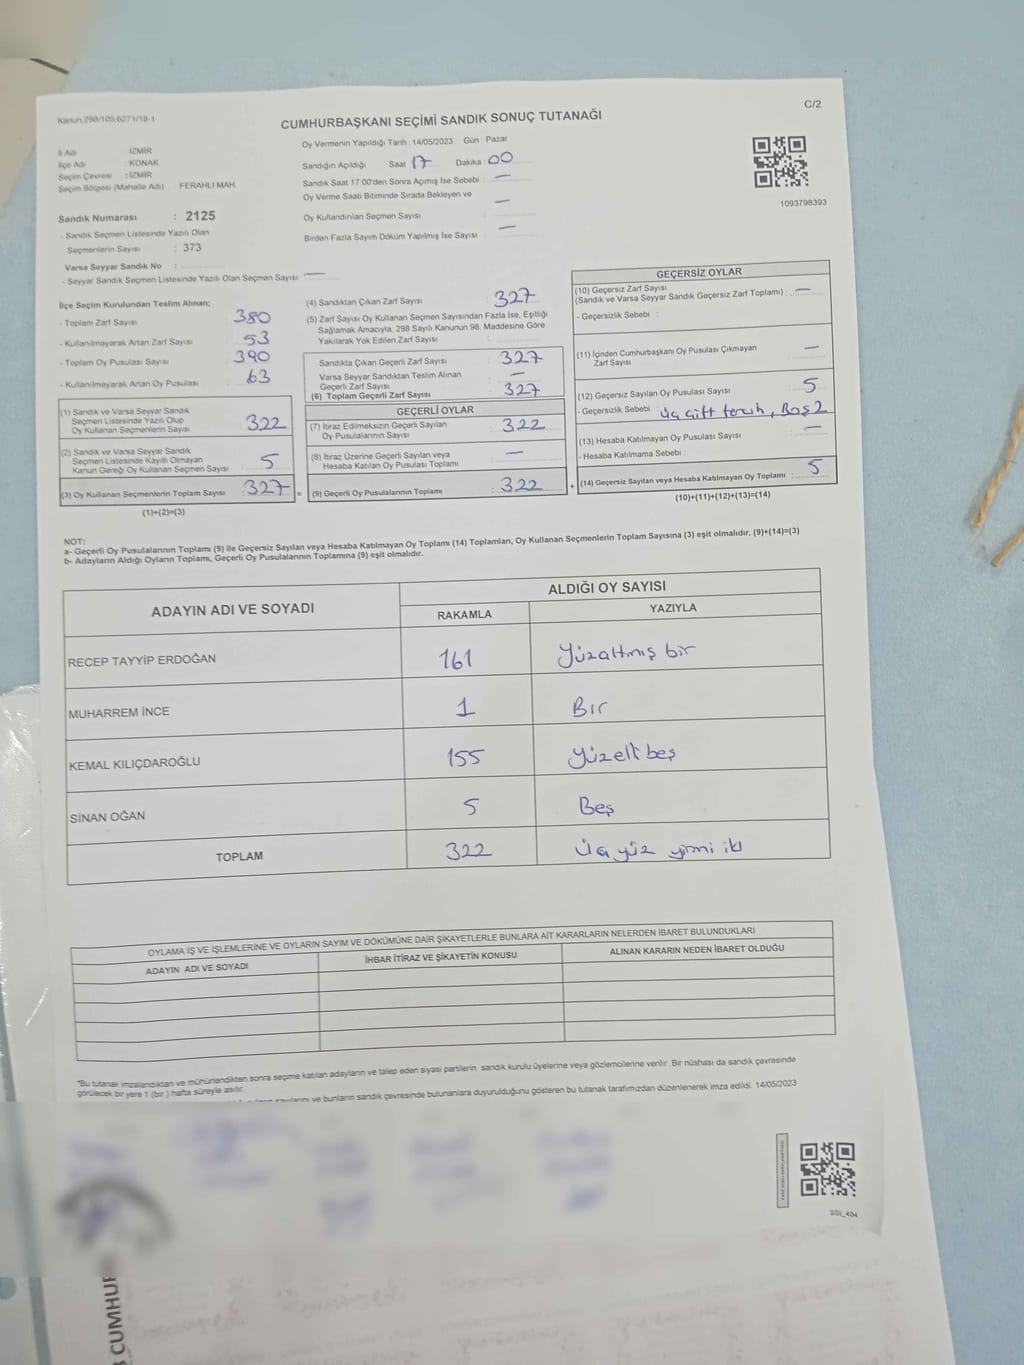 Kanun:298/109,6271/18-1
C/2
CUMHURBAŞKANI SEÇİMİ SANDIK SONUÇ TUTANAĞI
İl Adı : İZMİR
İlçe Adı : KONAK
Seçim Çevresi : İZMİR
Seçim Bölgesi (Mahalle Adı) : FERAHLI MAH.
Sandık Numarası : 2125
- Sandık Seçmen Listesinde Yazılı Olan
Seçmenlerin Sayısı : 373
Varsa Seyyar Sandık No :
- Seyyar Sandık Seçmen Listesinde Yazılı Olan Seçmen Sayısı : —
Oy Vermenin Yapıldığı Tarih : 14/05/2023 Gün : Pazar
Sandığın Açıldığı Saat 17 Dakika 00
Sandık Saat 17:00'den Sonra Açmış İse Sebebi : —
Oy Verme Saati Bitiminde Sırada Bekleyen ve
Oy Kullandırılan Seçmen Sayısı : —
Birden Fazla Sayım Döküm Yapılmış İse Sayısı : —
1093798393
İlçe Seçim Kurulundan Teslim Alınan;
- Toplam Zarf Sayısı : 380
- Kullanılmayarak Artan Zarf Sayısı : 53
- Toplam Oy Pusulası Sayısı : 390
- Kullanılmayarak Artan Oy Pusulası : 63
(1) Sandık ve Varsa Seyyar Sandık
Seçmen Listesinde Yazılı Olup
Oy Kullanan Seçmenlerin Sayısı : 322
(2) Sandık ve Varsa Seyyar Sandık
Seçmen Listesinde Kayıtlı Olmayan
Kanun Gereği Oy Kullanan Seçmen Sayısı : 5
(3) Oy Kullanan Seçmenlerin Toplam Sayısı : 327 =
(1)+(2)=(3)
(4) Sandıktan Çıkan Zarf Sayısı : 327
(5) Zarf Sayısı Oy Kullanan Seçmen Sayısından Fazla İse, Eşitliği
Sağlamak Amacıyla, 298 Sayılı Kanunun 98. Maddesine Göre
Yakılarak Yok Edilen Zarf Sayısı :
Sandıkta Çıkan Geçerli Zarf Sayısı : 327
Varsa Seyyar Sandıktan Teslim Alınan
Geçerli Zarf Sayısı : —
(6) Toplam Geçerli Zarf Sayısı : 327
GEÇERLİ OYLAR
(7) İtiraz Edilmeksizin Geçerli Sayılan
Oy Pusulalarının Sayısı : 322
(8) İtiraz Üzerine Geçerli Sayılan veya
Hesaba Katılan Oy Pusulası Toplamı : —
(9) Geçerli Oy Pusulalarının Toplamı : 322 +
GEÇERSİZ OYLAR
(10) Geçersiz Zarf Sayısı
(Sandık ve Varsa Seyyar Sandık Geçersiz Zarf Toplamı) : —
- Geçersizlik Sebebi :
(11) İçinden Cumhurbaşkanı Oy Pusulası Çıkmayan
Zarf Sayısı : —
(12) Geçersiz Sayılan Oy Pusulası Sayısı : 5
- Geçersizlik Sebebi : Üç çift tercih, Boş 2
(13) Hesaba Katılmayan Oy Pusulası Sayısı : —
- Hesaba Katılmama Sebebi :
(14) Geçersiz Sayılan veya Hesaba Katılmayan Oy Toplamı : 5
(10)+(11)+(12)+(13)=(14)
NOT:
a- Geçerli Oy Pusulalarının Toplamı (9) ile Geçersiz Sayılan veya Hesaba Katılmayan Oy Toplamı (14) Toplamları, Oy Kullanan Seçmenlerin Toplam Sayısına (3) eşit olmalıdır. (9)+(14)=(3)
b- Adayların Aldığı Oyların Toplamı, Geçerli Oy Pusulalarının Toplamına (9) eşit olmalıdır.
ADAYIN ADI VE SOYADI
ALDIĞI OY SAYISI
RAKAMLA YAZIYLA
RECEP TAYYİP ERDOĞAN 161 Yüzaltmış bir
MUHARREM İNCE 1 Bir
KEMAL KILIÇDAROĞLU 155 Yüzelli beş
SİNAN OĞAN 5 Beş
TOPLAM 322 Üç yüz yirmi iki
OYLAMA İŞ VE İŞLEMLERİNE VE OYLARIN SAYIM VE DÖKÜMÜNE DAİR ŞİKAYETLERLE BUNLARA AİT KARARLARIN NELERDEN İBARET BULUNDUKLARI
ADAYIN ADI VE SOYADI İHBAR İTİRAZ VE ŞİKAYETİN KONUSU ALINAN KARARIN NEDEN İBARET OLDUĞU
"Bu tutanak imzalandıktan ve mühürlendikten sonra seçime katılan adayların ve talep eden siyasi partilerin sandık kurulu üyelerine veya gözlemcilerine verilir. Bir nüshası da sandık çevresinde
görülecek bir yere 1 (bir) hafta süreyle asılır.
ve bunların sandık çevresinde bulunanlara duyurulduğunu gösteren bu tutanak tarafımızdan düzenlenerek imza edildi. 14/05/2023
SSI_404
CUMHUR